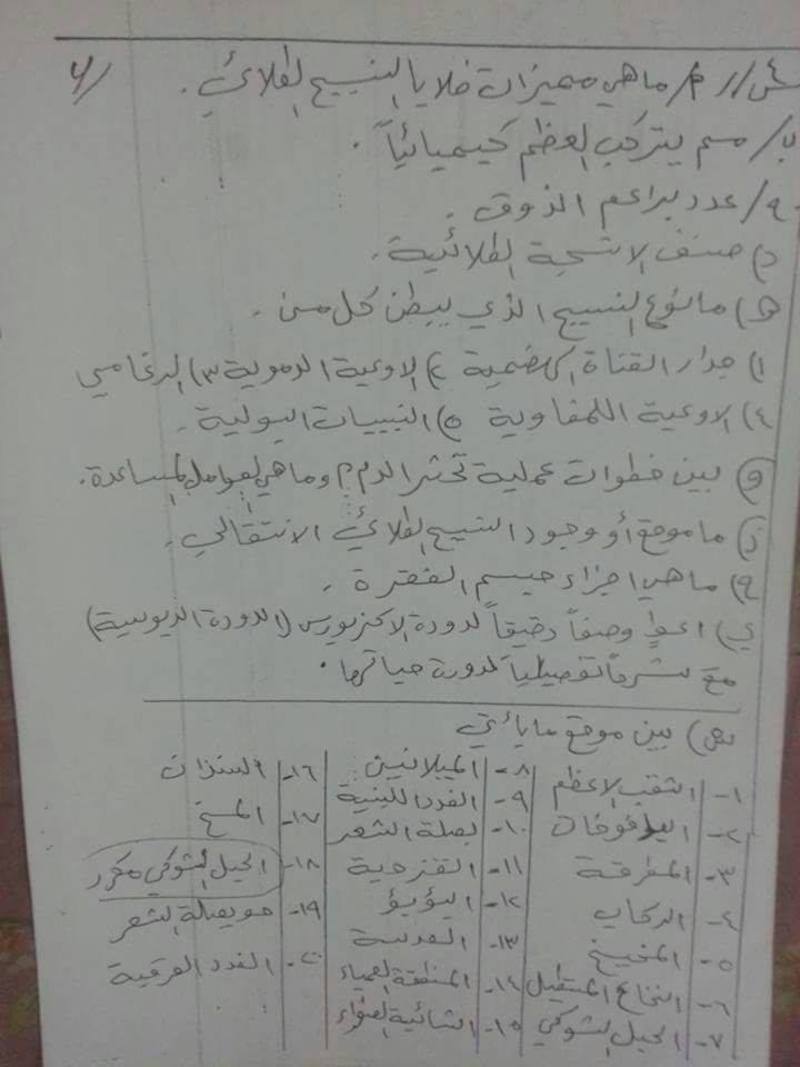 س٤// P/ ما هي مميزات خلايا النسيج الطلائي. /٤
ب/ مم يتركب العظم كيميائياً.
ج/ عدد براعم الذوق.
د) صنف الانسجة الطلائية.
هـ) ما نوع النسيج الذي يبطن كل من.
١) جدار القناة الهضمية ٢) الاوعية الدموية ٣) الرغامي
٤) الاوعية اللمفاوية ٥) النبيبات البولية.
و) بين خطوات عملية تخثر الدم وما هي العوامل المساعدة.
ز) ما موقع أو وجود النسيج الطلائي الانتقالي.
ح) ما هي اجزاء جسم الفقرة.
ي) اعطِ وصفاً دقيقاً لدودة الاكزيورس (الدودة الدبوسية)
مع شرحاً تفصيلياً لدورة حياتها.
بين موقع ما يأتي
١- الثقب الاعظم
٢- اليافوخان
٣- المطرقة
٤- الركاب
٥- المخيخ
٦- النخاع المستطيل
٧- الحبل الشوكي
٨- الميلانين
٩- الغدد اللبنية
١٠- بصلة الشعر
١١- القزحية
١٢- البؤبؤ
١٣- العدسة
١٤- المنطقة العمياء
١٥- الثنائية العشواء
١٦- السندان
١٧- المخ
١٨- الحبل الشوكي مكرر
١٩- حويصلة الشعر
٢٠- الغدد العرقية